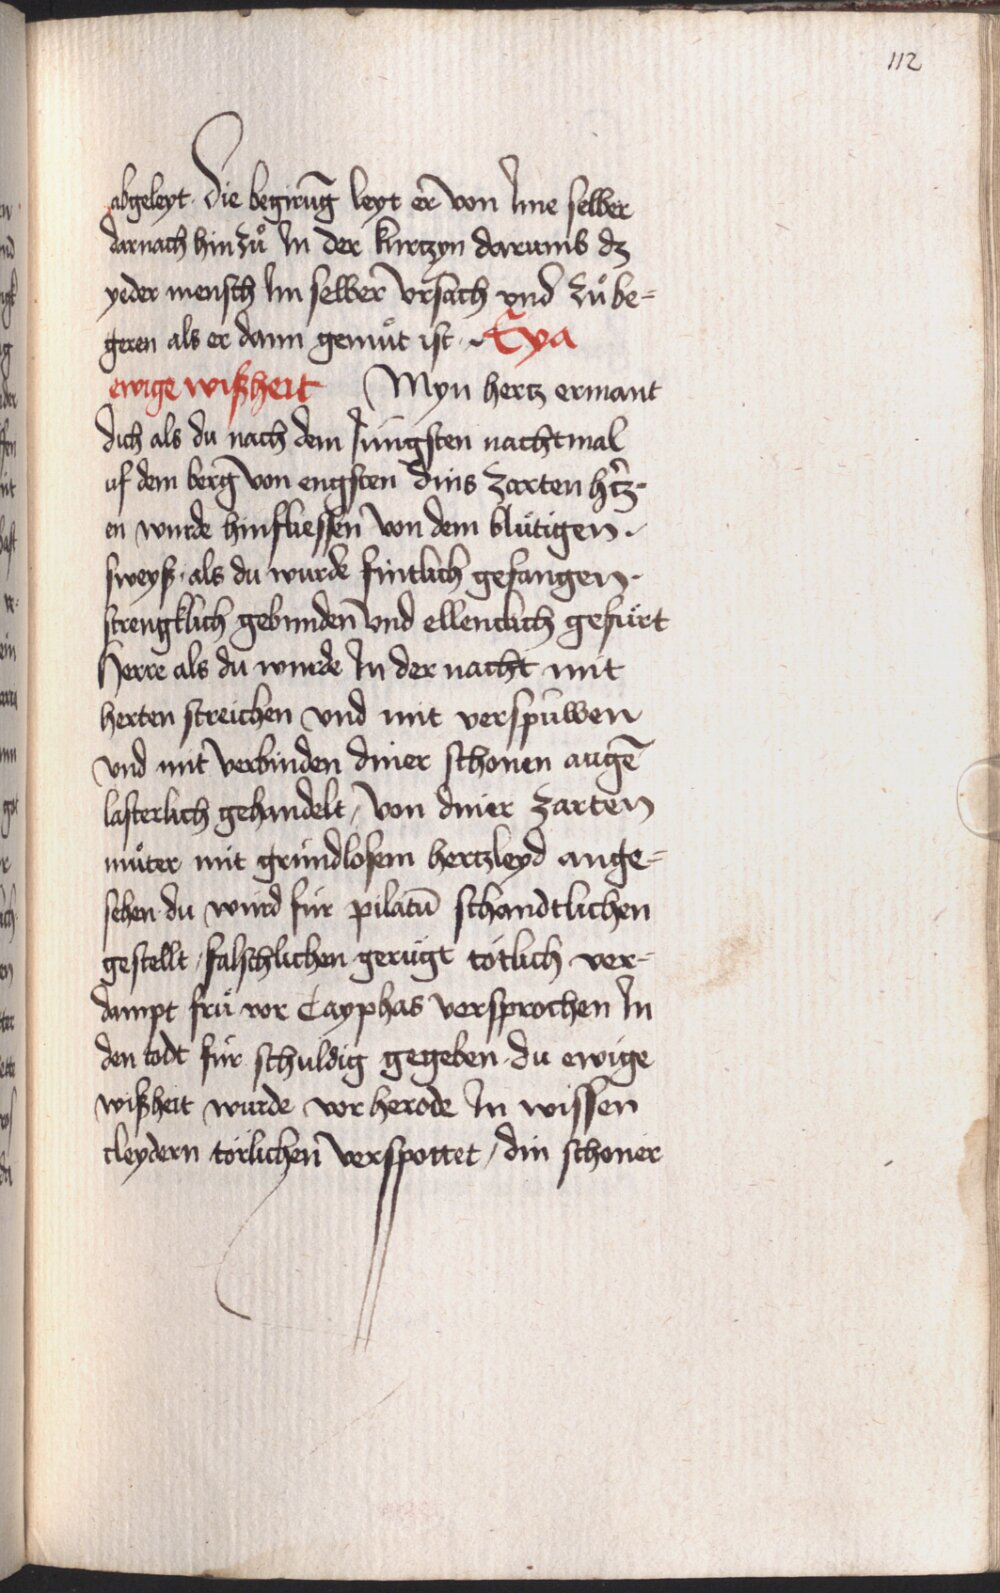 112
abgeleyt · Die begirūg leyt er von Jme selber
darnach hin zů Jn der kurtzyn darumb dz
yeder mensch Jm selber vrsach vnd zů be-
geren als er dann gemůt ist · Eya
ewige wißheit Myn hertz ermant
dich als du nach dem Jungsten nachtmal
uf dem berg von engsten dins zarten h̄tz-
en wurde hinfliessen von dem blůtigen ·
sweyß · als du wurde fintlich gefangen ·
strengklich gebunden vnd ellentlich gefürt
Herre als du wurde Jn der nacht mit
herten streichen vnd mit verspuwen
vnd mit verbinden diner schonen augē
lasterlich gehandelt / von diner zarten
můter mit grundlosem hertzleyd ange-
sehen · du wurd für pilatū schandtlichen
gestellt / falschlichen gerügt tötlich ver-
dampt frů vor Cayphas versprochen Jn
den todt für schuldig gegeben · du ewige
wißheit wurde vor herode Jn wissen
cleydern torlichen verspottet / din schoner